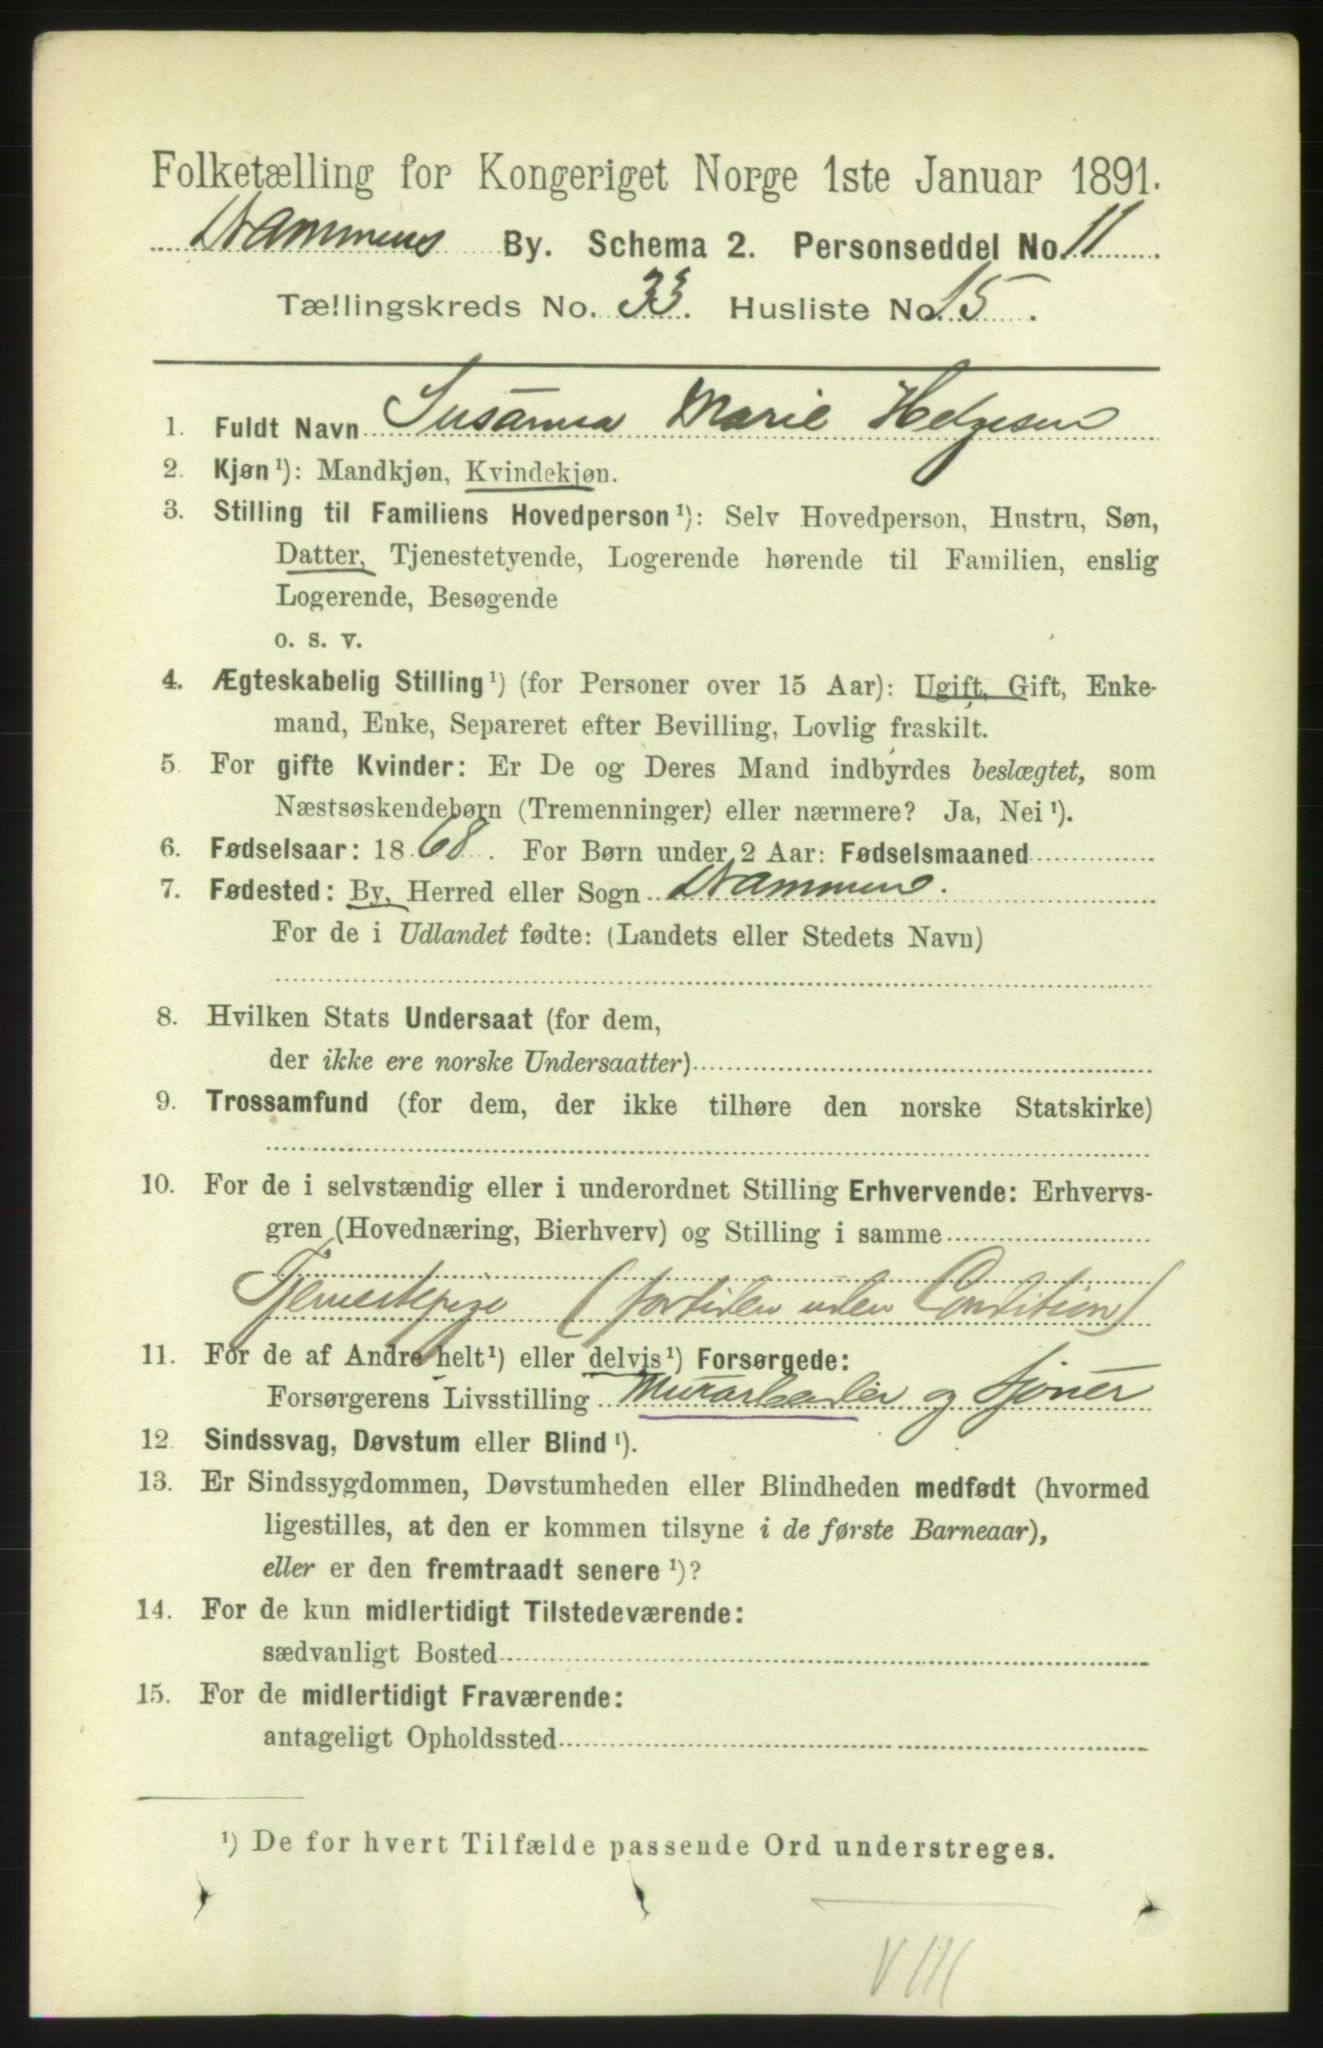 Folketælling for Kongeriget Norge 1ste Januar 1891.
Drammens By. Schema 2. Personseddel No. 11
Tællingskreds No. 33. Husliste No. 15.
1. Fuldt Navn Susanna Marie Helgesen
2. Kjøn¹): Mandkjøn, Kvindekjøn.
3. Stilling til Familiens Hovedperson¹): Selv Hovedperson, Hustru, Søn,
Datter, Tjenestetyende, Logerende hørende til Familien, enslig
Logerende, Besøgende
o. s. v.
4. Ægteskabelig Stilling¹) (for Personer over 15 Aar): Ugift, Gift, Enke-
mand, Enke, Separeret efter Bevilling, Lovlig fraskilt.
5. For gifte Kvinder: Er De og Deres Mand indbyrdes beslægtet, som
Næstsøskendebørn (Tremenninger) eller nærmere? Ja, Nei¹).
6. Fødselsaar: 1868. For Børn under 2 Aar: Fødselsmaaned
7. Fødested: By, Herred eller Sogn Drammens.
For de i Udlandet fødte: (Landets eller Stedets Navn)
8. Hvilken Stats Undersaat (for dem,
der ikke ere norske Undersaatter)
9. Trossamfund (for dem, der ikke tilhøre den norske Statskirke)
10. For de i selvstændig eller i underordnet Stilling Erhvervende: Erhvervs-
gren (Hovednæring, Bierhverv) og Stilling i samme
Tjenestepige (fortiden uden Condition)
11. For de af Andre helt¹) eller delvis¹) Forsørgede:
Forsørgerens Livsstilling Murarbeider og
12. Sindssvag, Døvstum eller Blind¹).
13. Er Sindssygdommen, Døvstumheden eller Blindheden medfødt (hvormed
ligestilles, at den er kommen tilsyne i de første Barneaar),
eller er den fremtraadt senere¹)?
14. For de kun midlertidigt Tilstedeværende:
sædvanligt Bosted
15. For de midlertidigt Fraværende:
antageligt Opholdssted
¹) De for hvert Tilfælde passende Ord understreges.
VIII